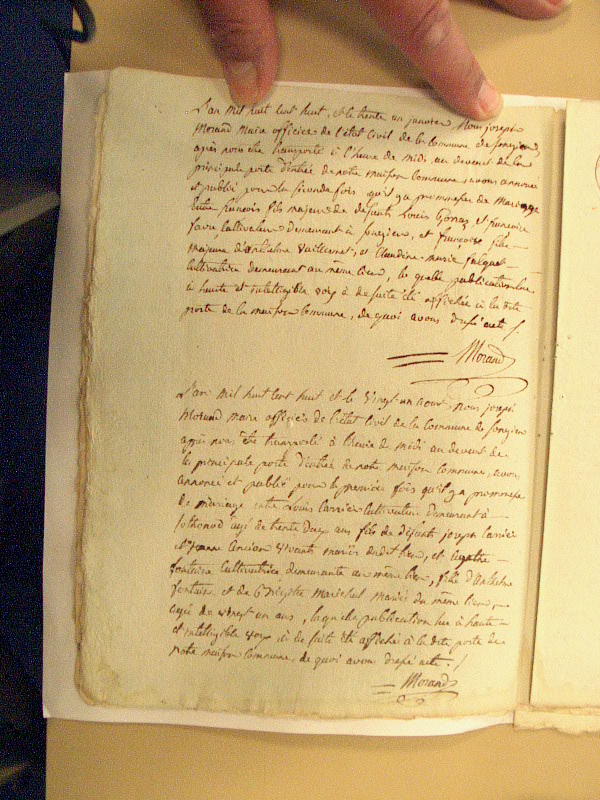 L'an mil huit cent huit, et le trente un janvier Nous joseph
Morand Maire officier de l'état Civil de la Commune de
après nous être transporté à l'heure de midi au devent de la
principale porte d'entrée de notre maison Commune, avons annoncé
et publié pour la seconde fois qu'il y a promnesse de Mariage
Entre françois fils majeur de defunts Louis et françoise
favre Cultivateur demeurant à et françoise fille
majeure d'anthelme et Claudine marie
Cultivatrice demeurant au même lieu, la qu'elle publication lue
à haute et inteligible voix à de suite été affichée à la dite
porte de la maison Commune, de quoi avons drassé acte /
Morand
L'an mil huit cent huit et le vingt un aout Nous joseph
Morand maire officier de l'état Civil de la Commune de
après nous être transporté à l'heure de midi au devent de
la principale porte d'entrée de notre maison Commune, avons
annoncé et publié pour la premier fois qu'il y a promnesse
de mariage entre Louis Carrier Cultivateur demeurant à
agé de trente Deux ans fils de defunts joseph Carrier
et jeanne vivants mariés dudit lieu, et agathe
fontaine Cultivatrice demeurante au même lieu, fille d'Anthelme
fontaine et de Maréchal Mariés du même lieu,
agée de vingt un ans, laquelle publication lue à haute
et intelligible voix à de suite été affiché à la dite porte de
notre maison Commune, de quoi avons drassé acte. /
Morand